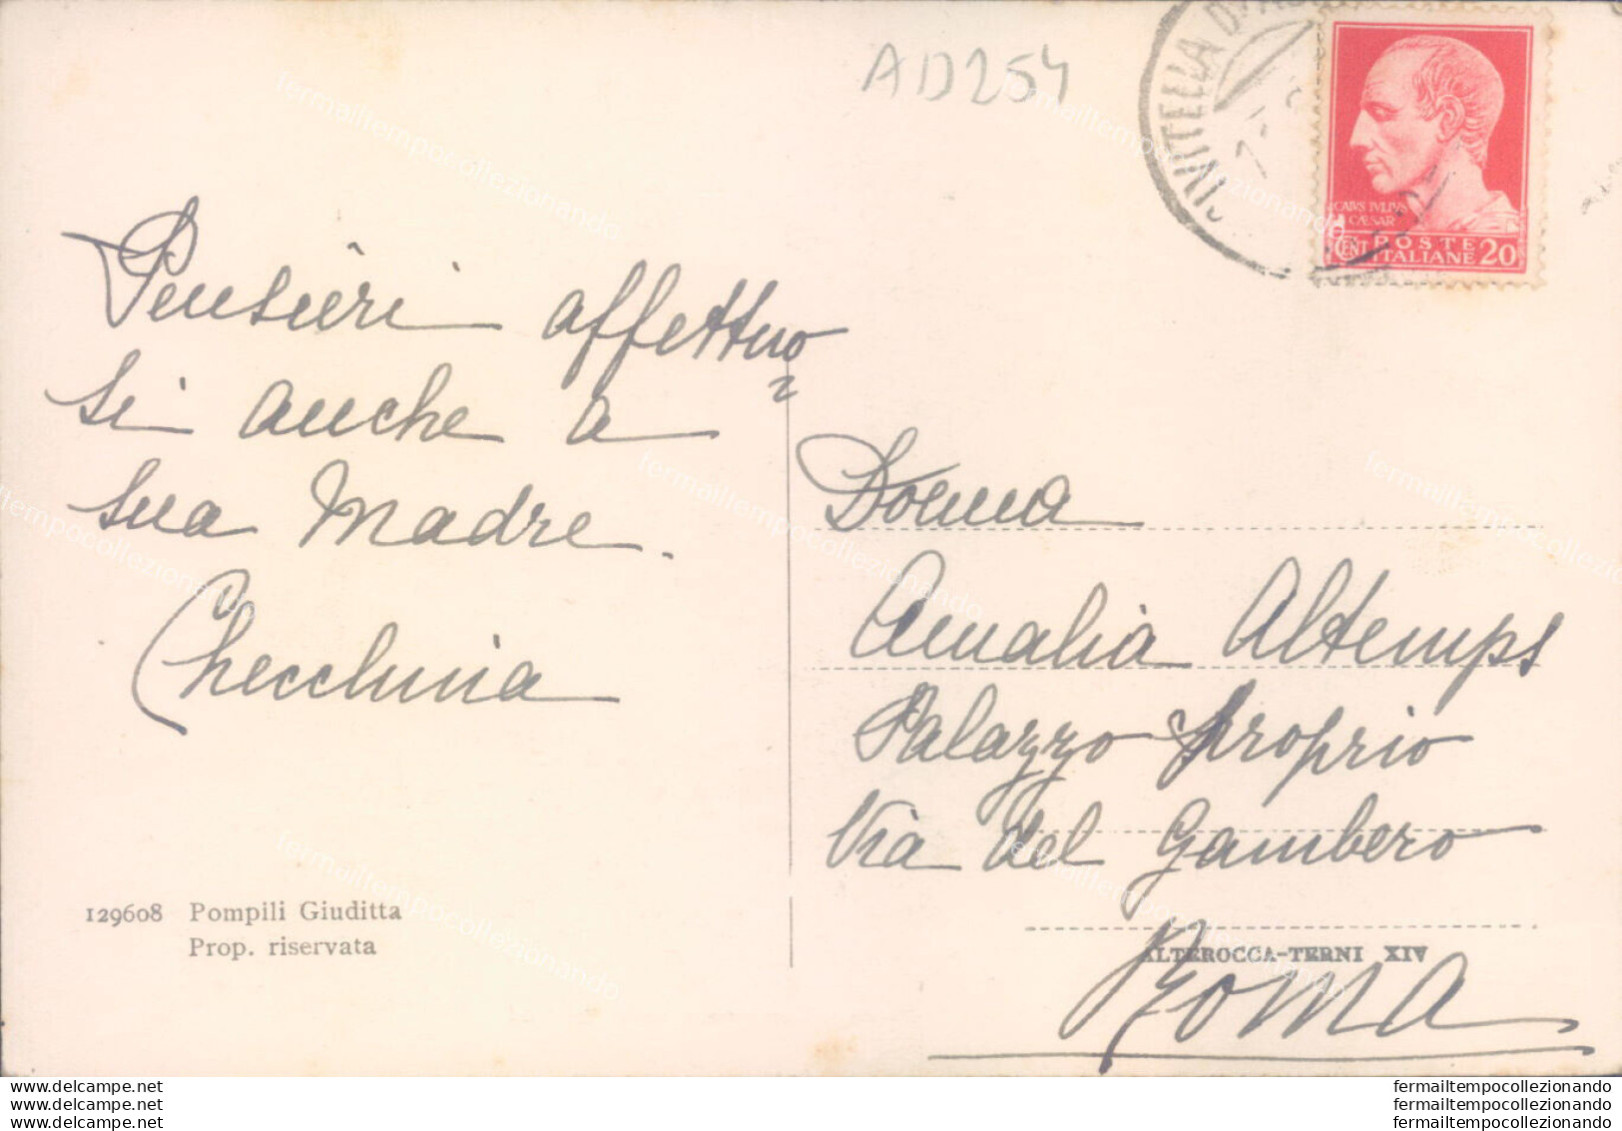 AD254
CIVITELLA D'
CAIVS IVLIVS
CAESAR
CENT POSTE 20
ITALIANE
Pensieri affettuo
si anche a
sua Madre.
Checchina
Donna
Amalia Altemps
Palazzo proprio
Via del Gambero
Roma
129608 Pompili Giuditta
Prop. riservata
ALTEROCCA-TERNI XIV
fermailtempocollezionando
www.delcampe.net
www.delcampe.net
www.delcampe.net
fermailtempocollezionando
fermailtempocollezionando
fermailtempocollezionando